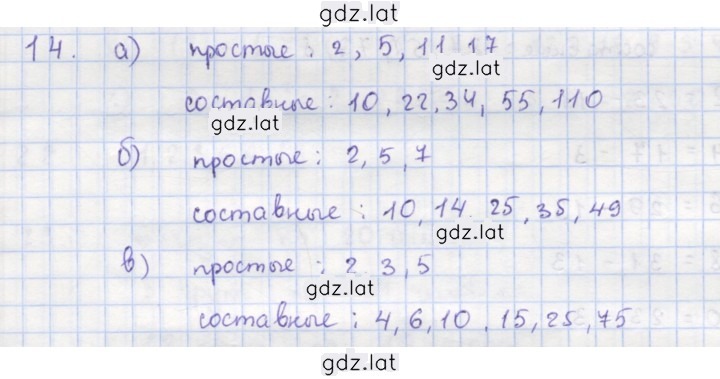 gdz.lat
14. а) простые : 2, 5, 11 17
gdz.lat
составные : 10, 22, 34, 55, 110
gdz.lat
б) простые : 2, 5, 7
составные : 10, 14 25, 35, 49
gdz.lat
в) простые : 2 3, 5
gdz.lat
составные : 4, 6, 10, 15, 25, 75
gdz.lat